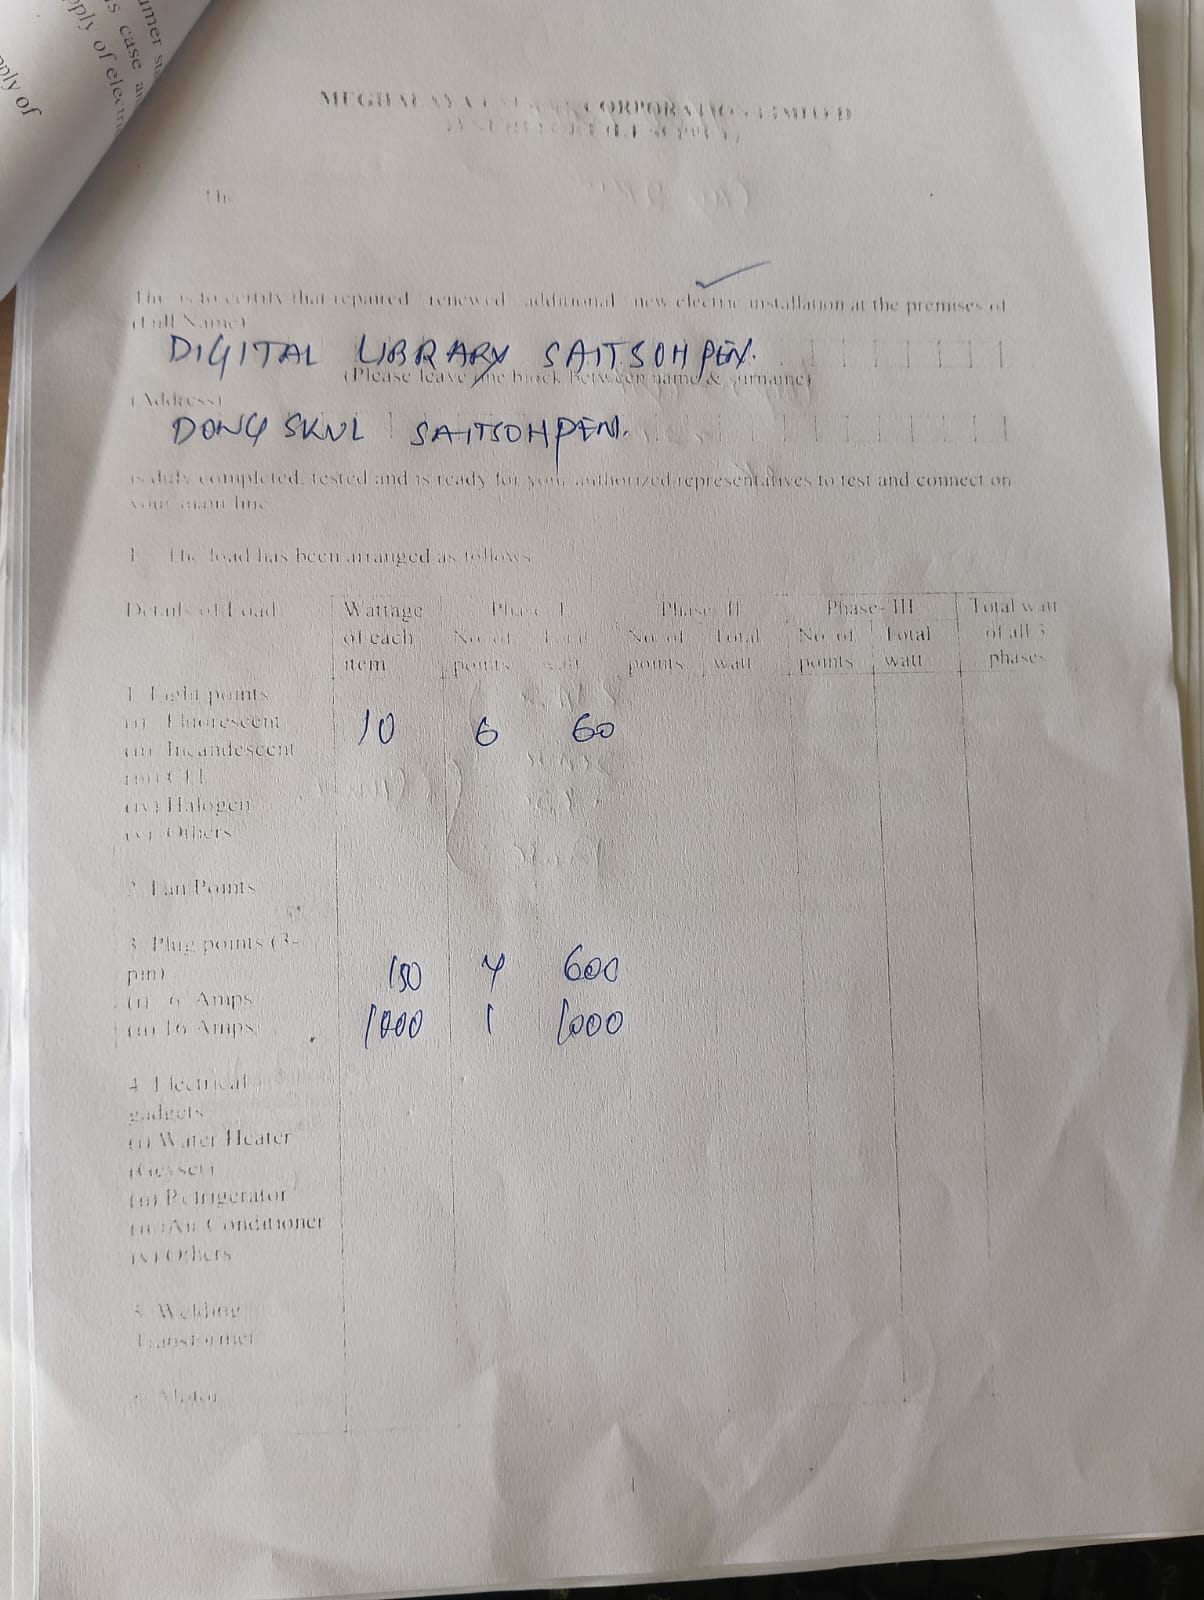 umer sta
is case an
pply of electric
pply of
MEGHALAYA CORPORATION LIMITED
This is to certify that repaired renewed additional new electric installation at the premises of
(Full Name)
DIGITAL LIBRARY SAITSOHPEN.
(Please leave one block between name & surname)
(Address)
DONG SKUL SAITSOHPEN.
is duly completed, tested and is ready for your authorized representatives to test and connect on
your main line
1. The load has been arranged as follows
Details of Load Wattage Phase- I Phase- II Phase- III Total watt
of each No. of Total No. of Total No. of Total of all 3
item points watt points watt points watt phases
1. Light points
(i) Fluorescent 10 6 60
(ii) Incandescent
(iii) CFL
(iv) Halogen
(v) Others
2. Fan Points
3. Plug points (3-
pin) 150 4 600
(i) 6 Amps
(ii) 16 Amps 1000 1 1000
4. Electrical
gadgets
(i) Water Heater
(Geyser)
(ii) Refrigerator
(iii) Air Conditioner
Others
5. Welding
Transformer
6. Motor
1